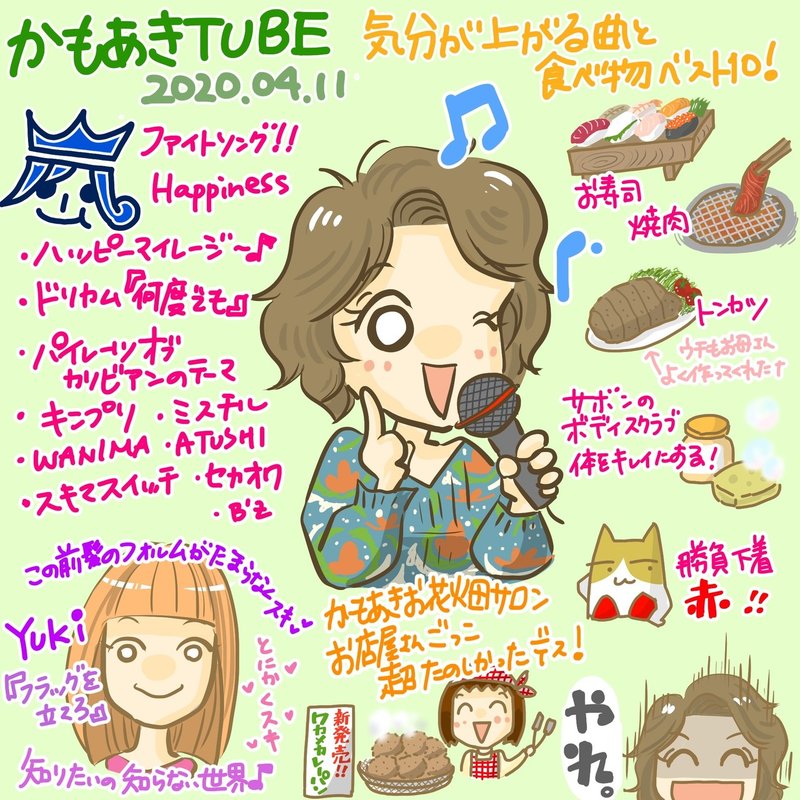 かもあきTUBE
2020.04.11
気分が上がる曲と
食べ物ベスト10!
嵐
ファイトソング!!
Happiness
・ハッピーマイレージ〜♪
・ドリカム『何度でも』
・パイレーツオブ
カリビアンのテーマ
・キンプリ ・ミスチル
・WANIMA ・ATUSHI
・スキマスイッチ ・セカオワ
・B'z
お寿司
焼肉
トンカツ
↑ウチもお母さん
よく作ってくれた↑
サボンの
ボディスクラブ
体をキレイにある!
勝負下着
赤!!
この前髪のフォルムがたまらなくスキ
Yuki
『フラッグを
立てろ』
とにかくスキ
知りたいの知らない世界♪
かもあきお花畑サロン
お店屋さんごっこ
超たのしかったデス!
新発売!!
ワカメカレーパン
やれ。